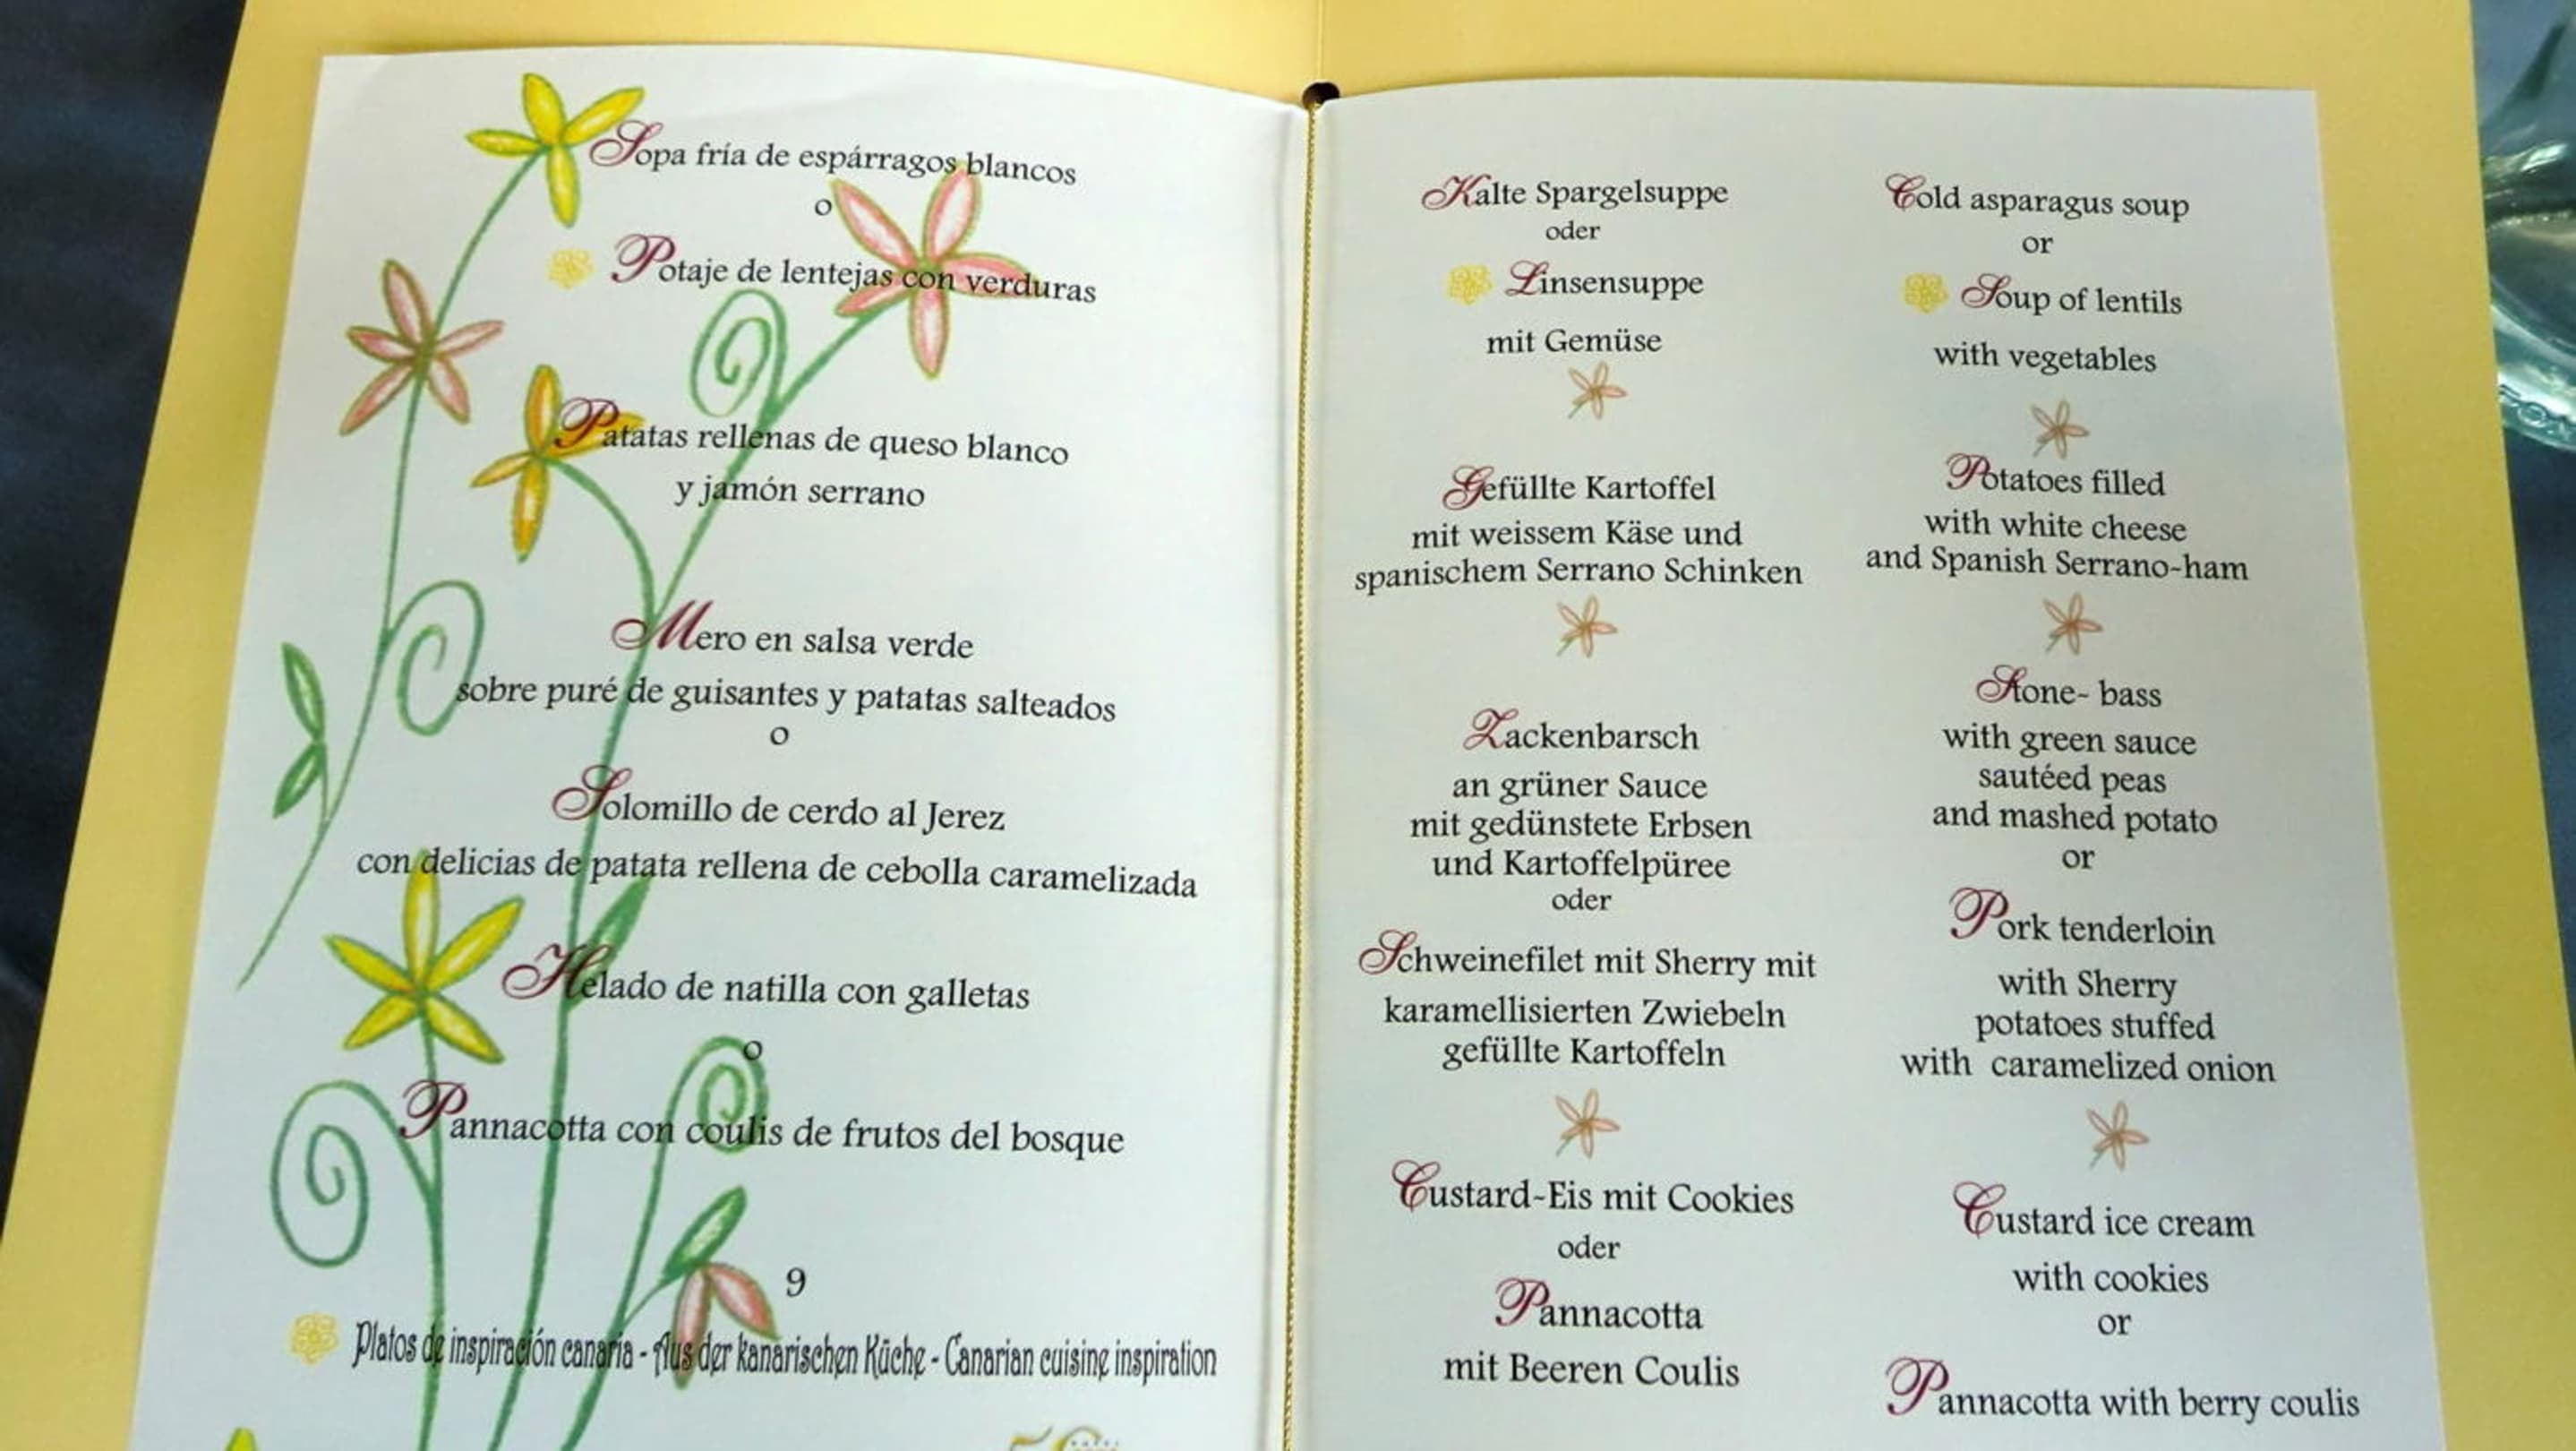 Sopa fría de espárragos blancos
o
Potaje de lentejas con verduras
Patatas rellenas de queso blanco
y jamón serrano
Mero en salsa verde
sobre puré de guisantes y patatas salteados
o
Solomillo de cerdo al Jerez
con delicias de patata rellena de cebolla caramelizada
Helado de natilla con galletas
o
Pannacotta con coulis de frutos del bosque
9
Platos de inspiración canaria - Aus der kanarischen Küche - Canarian cuisine inspiration
Kalte Spargelsuppe
oder
Linsensuppe
mit Gemüse
Gefüllte Kartoffel
mit weissem Käse und
spanischem Serrano Schinken
Zackenbarsch
an grüner Sauce
mit gedünstete Erbsen
und Kartoffelpüree
oder
Schweinefilet mit Sherry mit
karamellisierten Zwiebeln
gefüllte Kartoffeln
Custard-Eis mit Cookies
oder
Pannacotta
mit Beeren Coulis
Cold asparagus soup
or
Soup of lentils
with vegetables
Potatoes filled
with white cheese
and Spanish Serrano-ham
Stone- bass
with green sauce
sautéed peas
and mashed potato
or
Pork tenderloin
with Sherry
potatoes stuffed
with caramelized onion
Custard ice cream
with cookies
or
Pannacotta with berry coulis